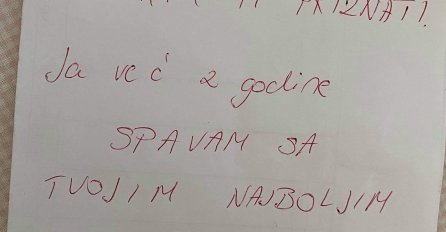 PRIZNATI!
Ja već 2 godine
SPAVAM SA
TVOJIM NAJBOLJIM